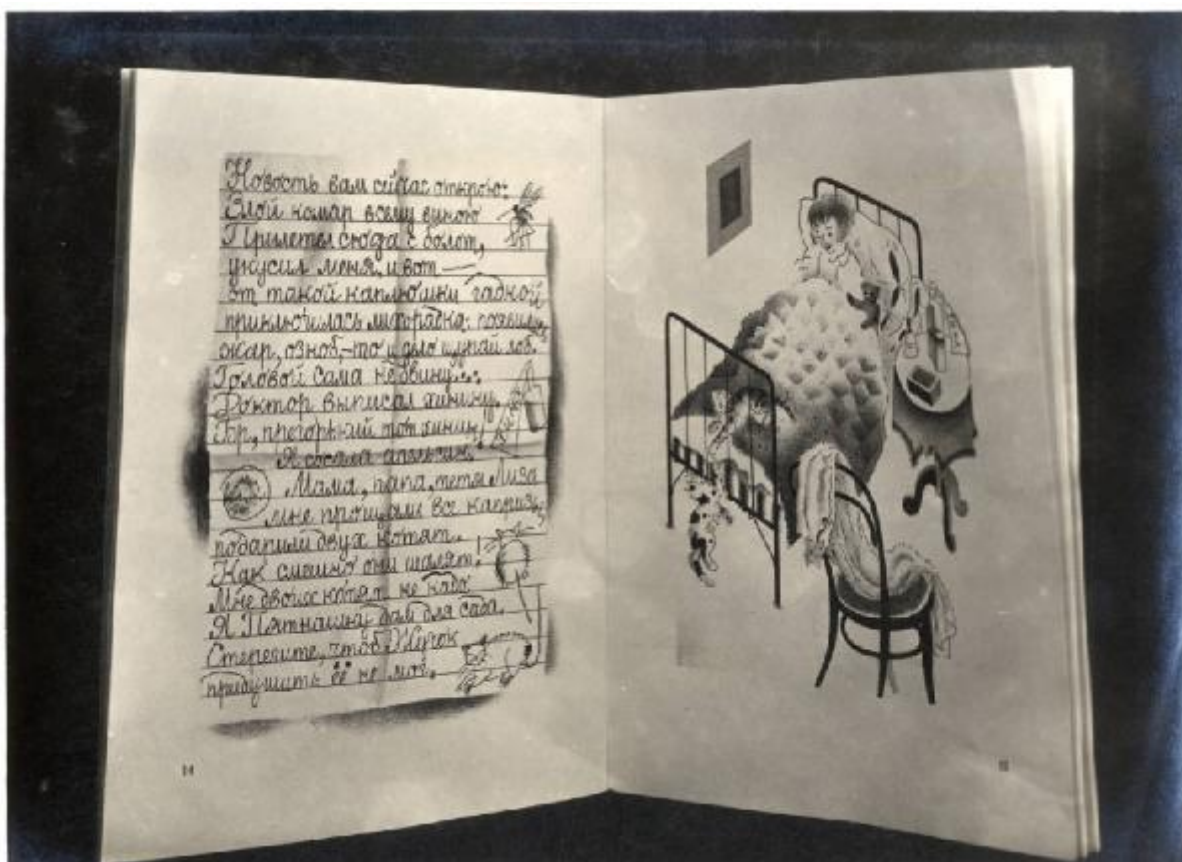 Новость вам сейчас открою:
Злой комар всему виною
Прилетел сюда с болот,
укусил меня, и вот —
от такой каплюшки гадкой
приключилась лихорадка: появились
жар, озноб,—то и дело щупай лоб.
Головой сама не двину...
Доктор выписал хинину.
Гор, прегорький тот хинин,
Я сосала апельсин.
Мама, папа, тетя Лиза
мне прощали все капризы,
подарили двух котят.
Как смешно они шалят!
Мне двоих котят не надо
Я Пятнашку дам для сада.
Стерегите, чтоб Жучок
придушить её не мог.
14
15